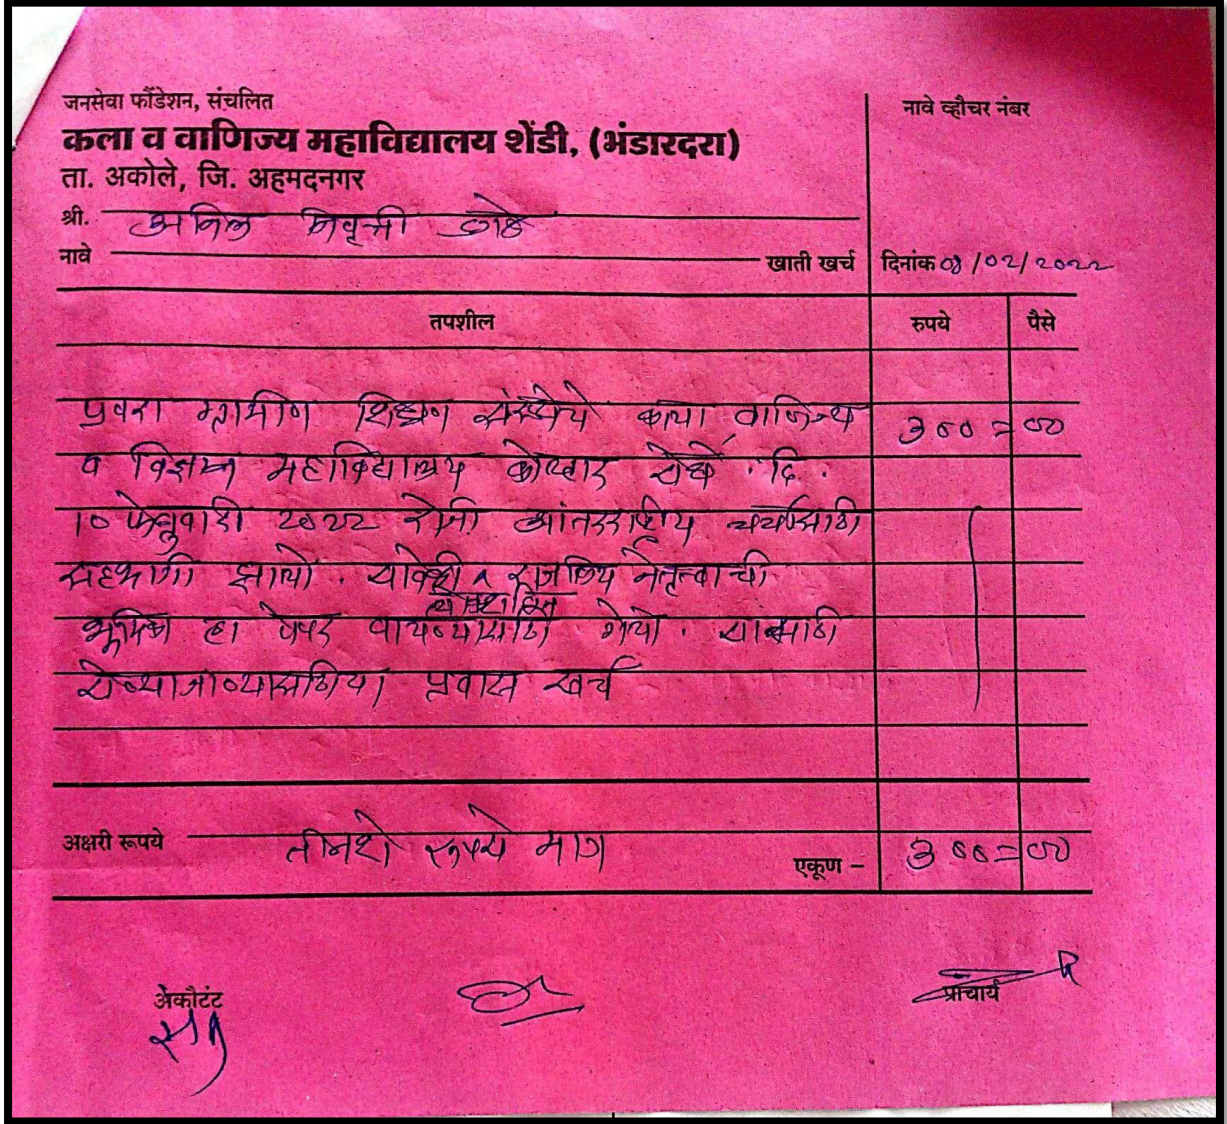 जनसेवा फौंडेशन, संचलित
कला व वाणिज्य महाविद्यालय शेंडी, (भंडारदरा)
ता. अकोले, जि. अहमदनगर
नावे व्हौचर नंबर
श्री. अनिल निवृत्ती
नावे खाती खर्च दिनांक /02/2022
तपशील रुपये पैसे
प्रवरा ग्रामीण शिक्षण संस्थेचे कला वाणिज्य 300 = 00
व विज्ञान महाविद्यालय कोल्हार येथे . दि .
10 फेब्रुवारी 2022 रोजी आंतरराष्ट्रीय चर्चेसाठी
सहभागी झालो . राजकिय नेतृत्वाची
भूमिका हा पेपर वाचण्यासाठी गेलो .
येण्याजाण्यासाठीचा प्रवास खर्च
अक्षरी रूपये तीनशे रुपये मात्र एकूण – 300 = 00
अेकौटंट
प्राचार्य